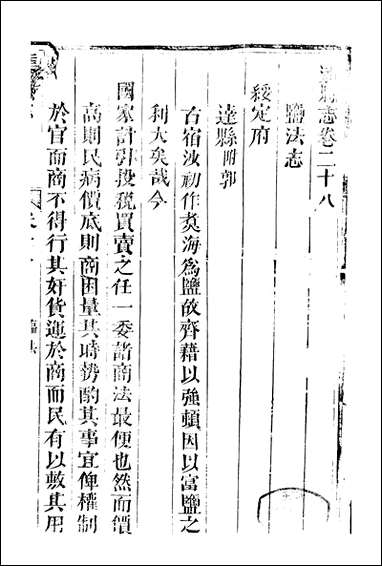 達縣志卷二十八
鹽法志
綏定府
達縣附郭
古宿沙初作煑海爲鹽故齊藉以強頓因以富鹽之
利大矣哉今
國家計引投税買賣之任一委諸商法最便也然而價
高則民病價底則商困量其時勢酌其事宜俾權制
於官而商不得行其奸貨運於商而民有以敷其用